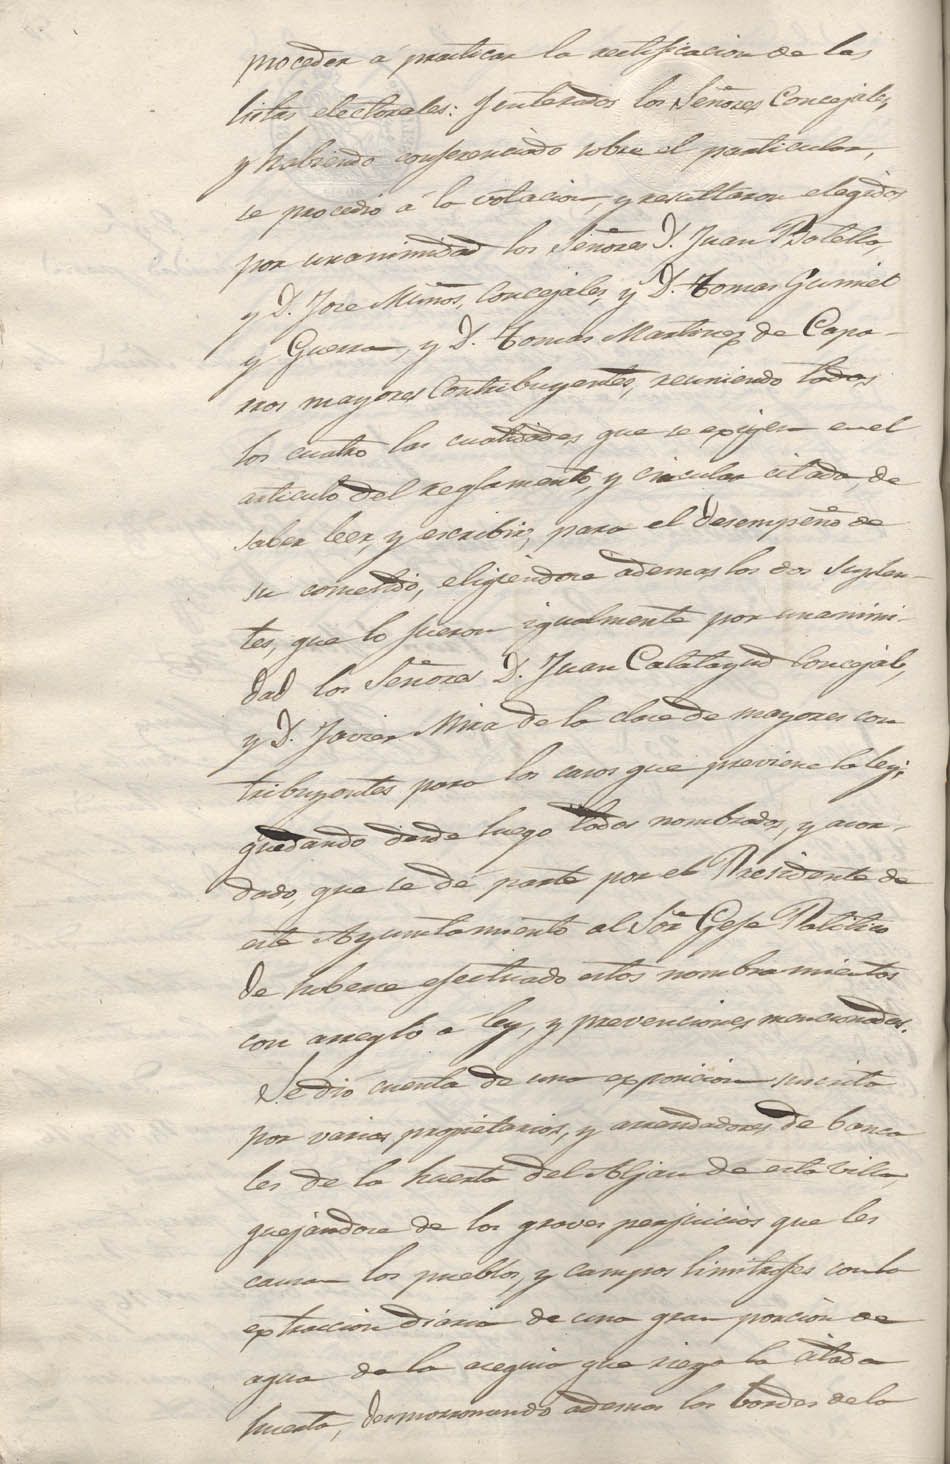 proceder á practicar la rectificacion de las
listas electorales: Y enterados los Señores Concejales,
y habiendo conferenciado sobre el particular,
se procedió á la votacion, y resultaron elegidos
por unanimidad los Señores D. Juan Botella,
y D. Jose Muños, Concejales, y D. Tomas Gumiel
y Guerra, y D. Tomas Martinez de Capa-
rros mayores Contribuyentes, reuniendo todos
los cuatro las cualidades que se exijen en el
articulo del reglamento, y circular citada, de
saber leer, y escribir, para el desempeño de
su cometido, eligiendose ademas los dos suplen-
tes, que lo fueron igualmente por unanimi-
dad los Señores D. Juan Calatayud Concejal,
y D. Javier Mira de la clase de mayores con
tribuyentes para los casos que previene la ley;
quedando desde luego todos nombrados, y acor-
dado, que se dé parte por el Presidente de
este Ayuntamiento al Sor Gefe Politico
de haberse efectuado estos nombramientos
con arreglo á ley, y prevenciones mencionadas.
Se dió cuenta de una exposicion suscrita
por varios propietarios, y arrendadores de banca
les de la huerta del Aljau de esta villa,
quejándose de los graves perjuicios que les
causan los pueblos, y campos limitrofes con la
extraccion diaria de una gran porcion de
agua de la acequia que riega la citada
huerta, desmorronando ademas los bordes de la